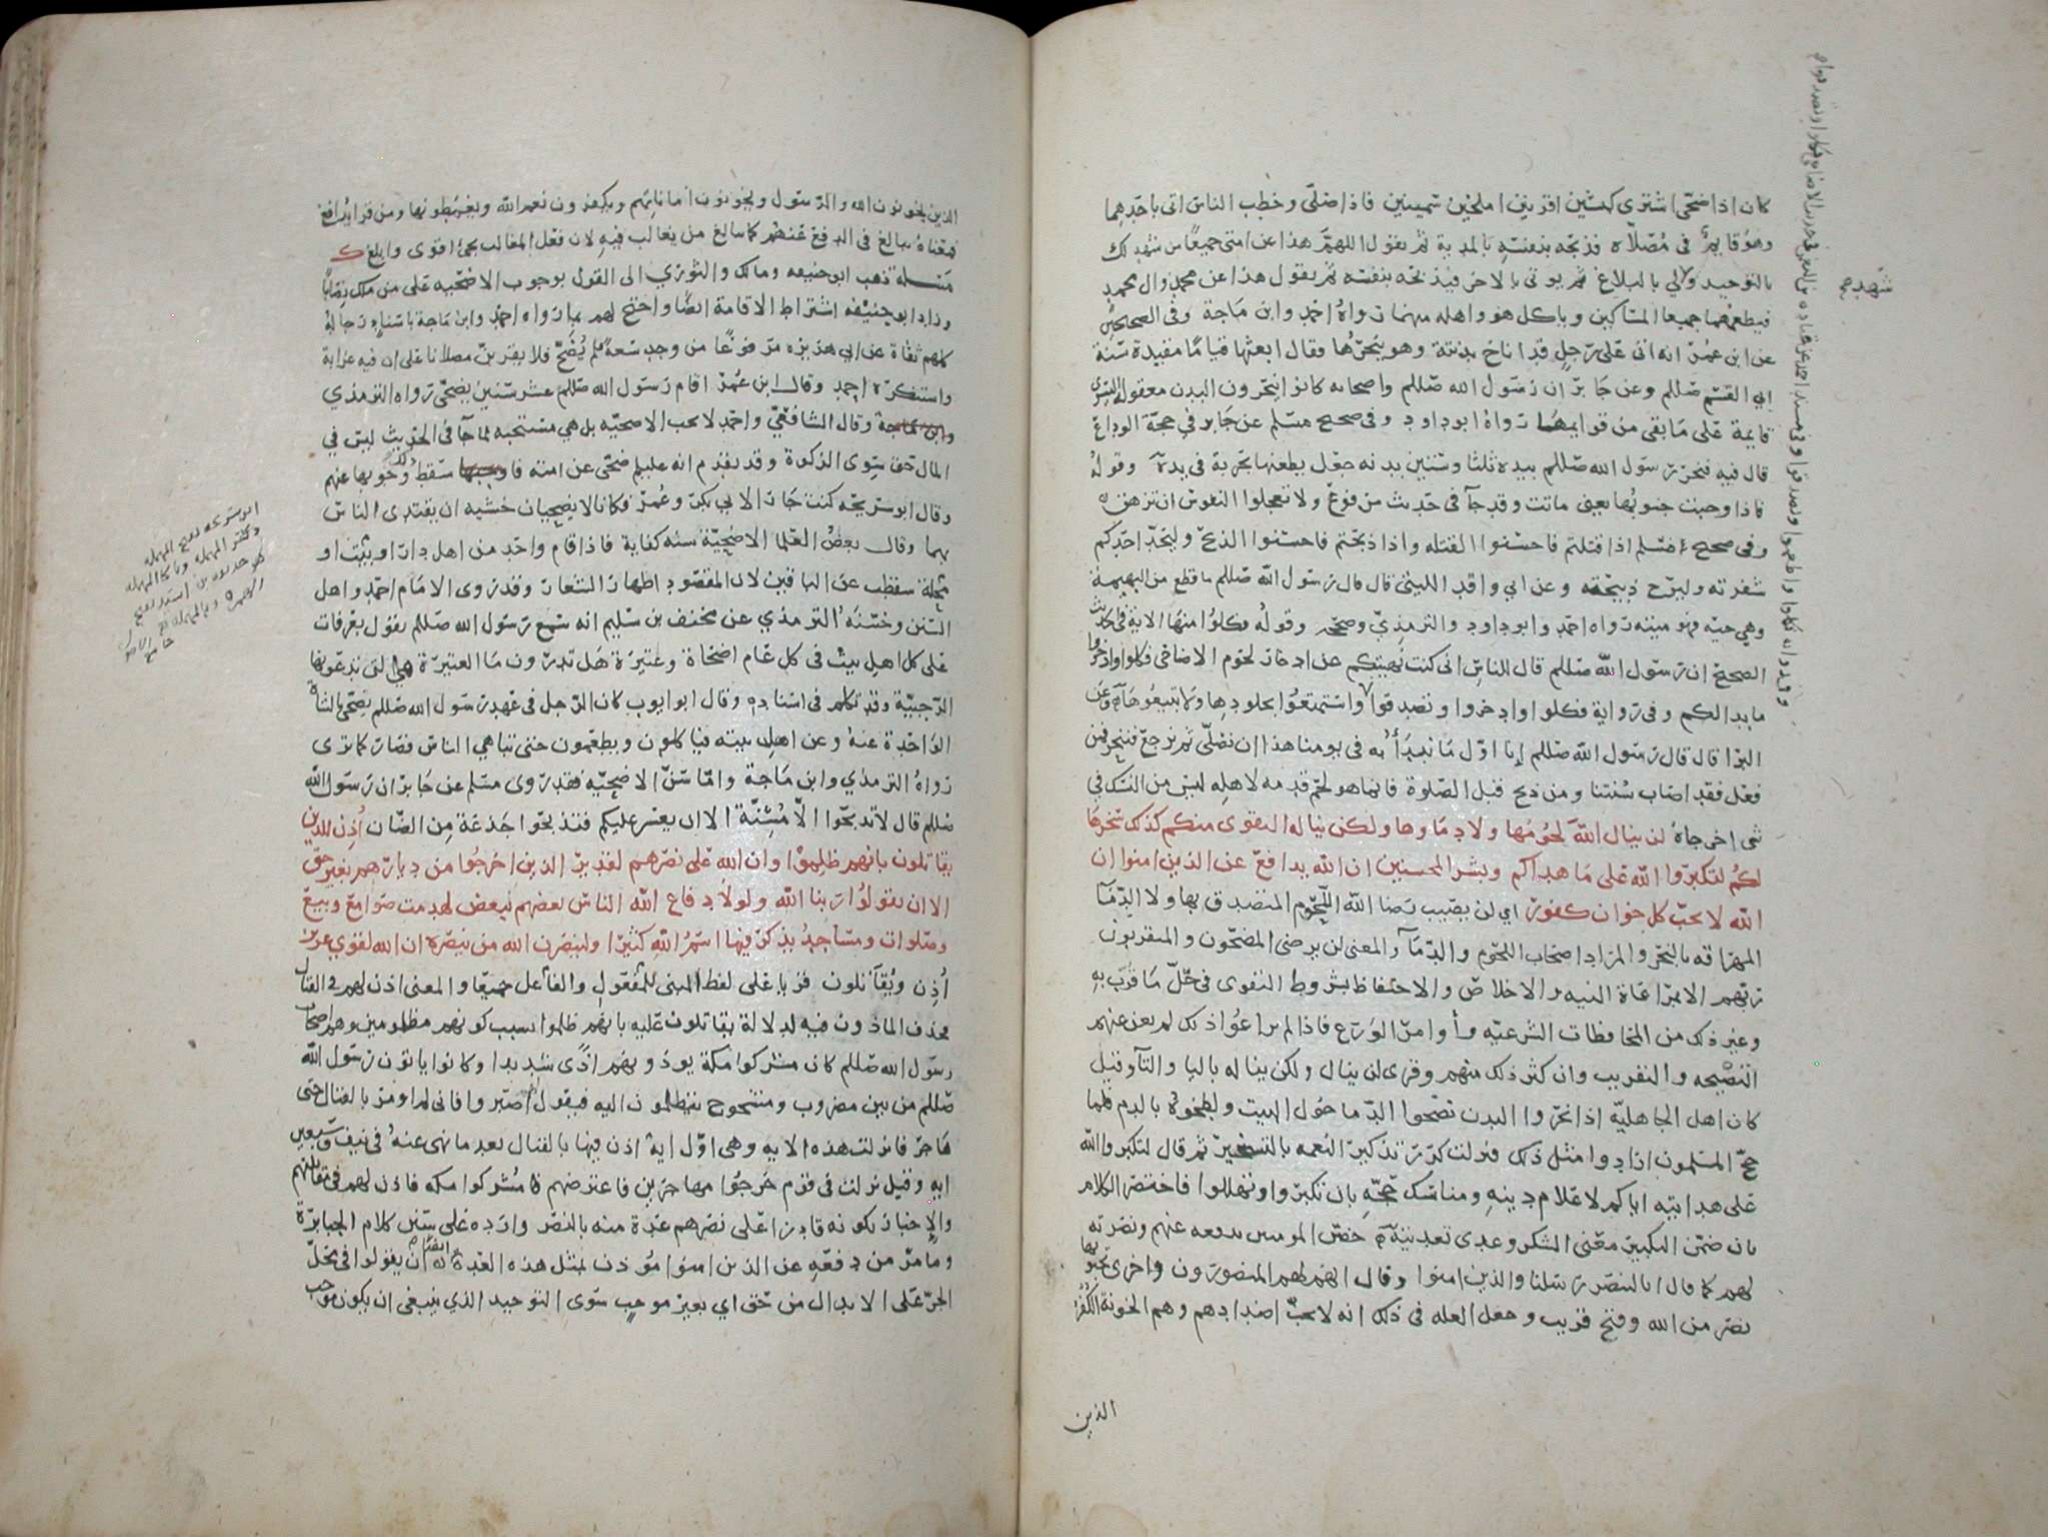 كان اذا ضحى اشترى كبشين اقرنين املحين سمينين فاذا صلى وخطب الناس اتى باحدهما
وهو قايم في مصلاه فذبحه بنفسه بالمدية ثم يقول اللهم هذا عن امتي جميعا من شهد لك
بالتوحيد ولي بالبلاغ ثم يوتى بالاخر فيذبحه بنفسه ثم يقول هذا عن محمد وال محمد
فيطعمهما جميعا المساكين وياكل هو واهله منهما رواه احمد وابن ماجة وفي الصحيحين
عن ابن عمر انه اتى على رجل قد اناخ بدنته وهو ينحرها فقال ابعثها قياما مقيدة سنة
ابي القسم صللم وعن جابر ان رسول الله صللم واصحابه كانوا ينحرون البدن معقولة اليسرى
قايمة على ما بقي من قوايمها رواه ابو داود وفي صحيح مسلم عن جابر في حجة الوداع
قال فيه فنحر رسول الله صللم بيده ثلثا وستين بدنه جعل يطعنها بحربة في يده وقوله
فاذا وجبت جنوبها يعني ماتت وقد جآ في حديث مرفوع ولا تعجلوا النفوس ان تزهق
وفي صحيح مسلم اذا قتلتم فاحسنوا القتله واذا ذبحتم فاحسنوا الذبح وليحد احدكم
شفرته وليرح ذبيحته وعن ابي واقد الليثي قال قال رسول الله صللم ما قطع من البهيمة
وهي حيه فهو ميته رواه احمد وابو داود والترمذي وصححه وقوله فكلوا منها الاية في الحديث
الصحيح ان رسول الله صللم قال للناس اني كنت نهيتكم عن ادخار لحوم الاضاحي فكلوا وادخروا
ما بدا لكم وفي رواية فكلوا وادخروا وتصدقوا واستمتعوا بجلودها ولا تبيعوها وعن
البرا قال قال رسول الله صللم ان اول ما نبدأ به في يومنا هذا ان نصلي ثم نرجع فننحر فمن
فعل فقد اصاب سنتنا ومن ذبح قبل الصلوة فانما هو لحم قدمه لاهله ليس من النسك في
شى اخرجاه لن ينال الله لحومها ولا دماوها ولكن يناله التقوى منكم كذلك سخرها
لكم لتكبروا الله على ما هداكم وبشر المحسنين ان الله يدافع عن الذين امنوا ان
الله لا يحب كل خوان كفور اي لن يصيب رضا الله اللحوم المتصدق بها ولا الدمآ
المهراقه بالنحر والمراد اصحاب اللحوم والدمآ والمعنى لن يرضى المضحون والمتقربون
ربهم الا بمراعاة النيه والاخلاص والاحتفاظ بشروط التقوى في حل ما قرب به
وغير ذلك من المحافظات الشرعيه وأوامر الورع فاذا لم يراعوا ذلك لم يغن عنهم
التضحيه والتقريب وان كثر ذلك منهم وقرى لن ينال ولكن يناله باليا والتآ وقيل
كان اهل الجاهليه اذا نحروا البدن نضحوا الدما حول البيت ولطخوه بالدم فلما
حج المسلمون ارادوا مثل ذلك فنزلت كرر تذكير النعمه بالتسخير ثم قال لتكبروا الله
على هدايته اياكم لاعلام دينه ومناسك حجه بان تكبروا وتهللوا فاختصر الكلام
بان ضمن التكبير معنى الشكر وعدى تعديته خص المومنين بدفعه عنهم ونصرته
لهم كما قال انا لننصر رسلنا والذين امنوا وقال انهم لهم المنصورون واخرى تحبونها
نصر من الله وفتح قريب وجعل العله في ذلك انه لا يحب اضدادهم وهم الخونة الكفرة
الذين
شهدهم
الذين يخونون الله والرسول ويخونون اماناتهم ويكفرون نعم الله ويغمطونها ومن قرا يدافع
فمعناه يبالغ في الدفع عنهم كما يبالغ من يغالب فيه لان فعل المغالب يجئ اقوى وابلغ
مسئله ذهب ابو حنيفه ومالك والثوري الى القول بوجوب الاضحيه على من ملك نصابا
وزاد ابو حنيفه اشتراط الاقامة ايضا واحتج لهم بما رواه احمد وابن ماجة باسناد رجاله
كلهم ثقاة عن ابي هريره مرفوعا من وجد سعة فلم يضح فلا يقربن مصلانا على ان فيه غرابة
واستنكره احمد وقال ابن عمر اقام رسول الله صللم عشر سنين يضحي رواه الترمذي
وقال الشافعي واحمد لا تجب الاضحيه بل هي مستحبه لما جآ في الحديث ليس في
المال حق سوى الزكوة وقد تقدم انه عليلم ضحى عن امته فاسقط ذلك وجوبها عنهم
وقال ابو سريحه كنت جارا لابي بكر وعمر فكانا لا يضحيان خشيه ان يقتدى الناس
بهما وقال بعض العلما الاضحية سنه كفاية فاذا قام واحد من اهل دار او بيت او
محلة سقطت عن الباقين لان المقصود اظهار الشعار وقد روى الامام احمد واهل
السنن وحسنه الترمذي عن مخنف بن سليم انه سمع رسول الله صللم يقول بعرفات
على كل اهل بيت في كل عام اضحاة وعتيرة هل تدرون ما العتيرة هي التي تدعونها
الرجبية وقد تكلم في اسناده وقال ابو ايوب كان الرجل في عهد رسول الله صللم يضحي بالشاة
الواحدة عنه وعن اهل بيته فياكلون ويطعمون حتى تباهي الناس فصار كما ترى
رواه الترمذي وابن ماجة واما سن الاضحيه فقد روى مسلم عن جابر ان رسول الله
صللم قال لا تذبحوا الا مسنة الا ان يعسر عليكم فتذبحوا جذعة من الضان أذن للذين
يقاتلون بانهم ظلموا وان الله على نصرهم لقدير الذين اخرجوا من ديارهم بغير حق
الا ان يقولوا ربنا الله ولولا دفاع الله الناس بعضهم ببعض لهدمت صوامع وبيع
وصلوات ومساجد يذكر فيها اسم الله كثيرا ولينصرن الله من ينصره ان الله لقوي عزيز
أذن ويقاتلون قريا على لفظ المبني للمفعول والفاعل جميعا والمعنى اذن لهم في القتال
فحذف الماذون فيه لدلالة يقاتلون عليه بانهم ظلموا بسبب كونهم مظلومين وهم اصحاب
رسول الله صللم كان مشركوا مكة يوذونهم اذى شديدا وكانوا ياتون رسول الله
صللم من بين مضروب ومشجوج يتظلمون اليه فيقول اصبروا فاني لم اومر بالقتال حتى
هاجر فانزلت هذه الايه وهي اول اية اذن فيها بالقتال بعد ما نهى عنه في نيف وسبعين
ايه وقيل نزلت في قوم خرجوا مهاجرين فاعترضهم مشركوا مكه فاذن لهم في مقاتلتهم
والاخبار بكونه قادرا على نصرهم عدة منه بالنصر وارده على سنن كلام الجبابرة
وما مر من دفعه عن الذين امنوا موذن بمثل هذه العدة ايضا ان يقولوا في محل
الجر على الابدال من حق اي بغير موجب سوى التوحيد الذي ينبغي ان يكون موجب